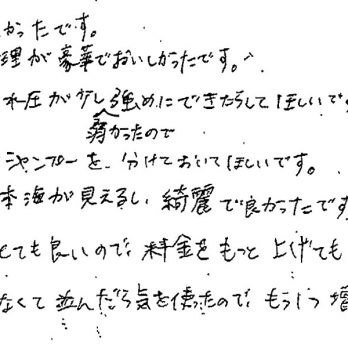 かったです。
理が豪華でおいしかったです。
水圧が少し強めにできたらしてほしいです
弱かったので
シャンプーを、分けておいてほしいです。
本海が見えるし、綺麗で良かったです
とても良いので、料金をもっと上げても
なくて並んだら気を使ったので、もう1つ増